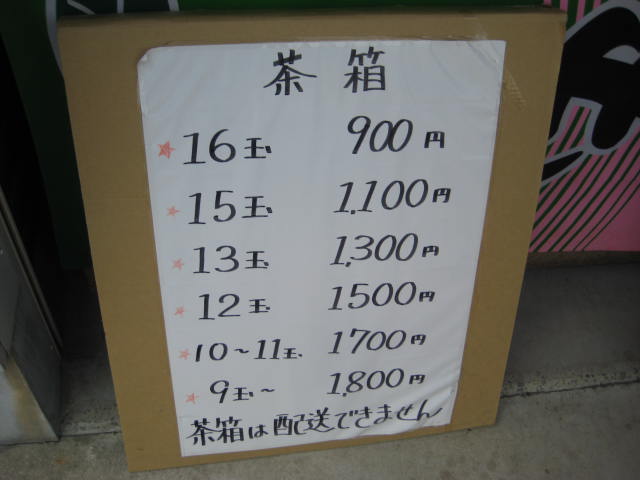 茶箱
16玉 900円
15玉 1,100円
13玉 1,300円
12玉 1500円
10～11玉 1700円
9玉～ 1,800円
茶箱は配送できません